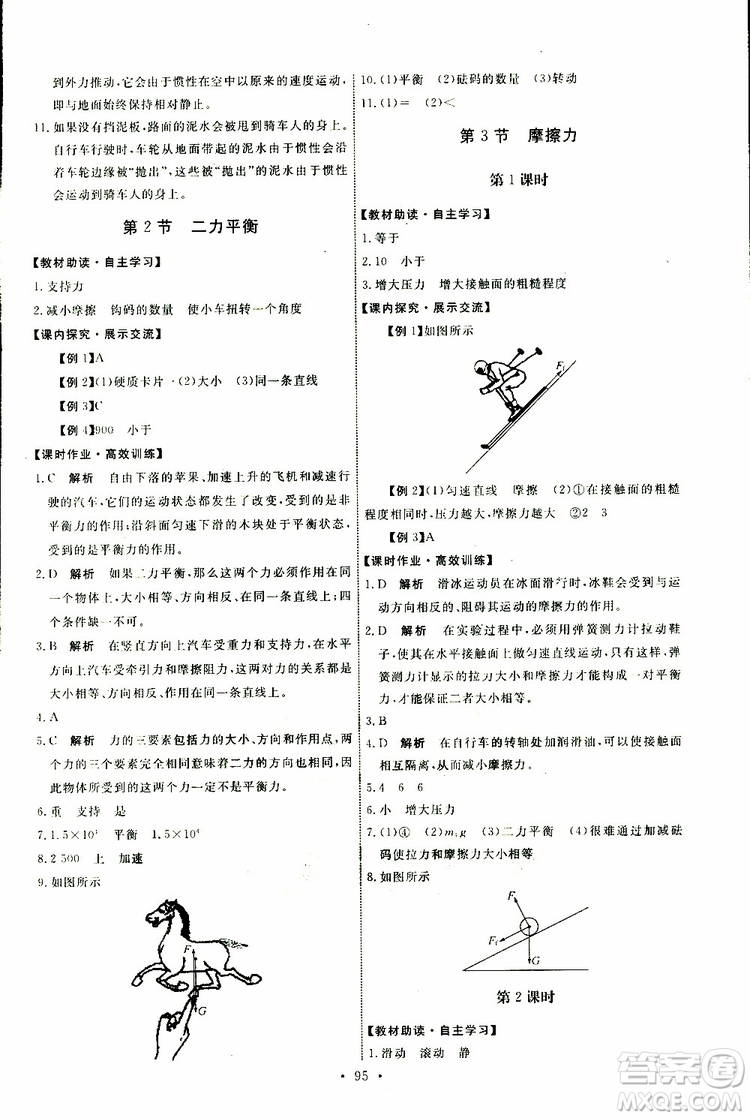 到外力推动,它会由于惯性在空中以原来的速度运动,
即与地面始终保持相对静止。
11.如果没有挡泥板,路面的泥水会被甩到骑车人的身上。
自行车行驶时,车轮从地面带起的泥水由于惯性会沿
着车轮边缘被“抛出”,这些被“抛出”的泥水由于惯性
会运动到骑车人的身上。
第2节 二力平衡
【教材助读·自主学习】
1.支持力
2.减小摩擦 钩码的数量 使小车扭转一个角度
【课内探究·展示交流】
【例1】A
【例2】(1)硬质卡片 (2)大小 (3)同一条直线
【例3】C
【例4】900 小于
【课时作业·高效训练】
1.C 解析 自由下落的苹果、加速上升的飞机和减速行
驶的汽车,它们的运动状态都发生了改变,受到的是非
平衡力的作用;沿斜面匀速下滑的木块处于平衡状态,
受到的是平衡力的作用。
2.D 解析 如果二力平衡,那么这两个力必须作用在同
一个物体上,大小相等、方向相反、作用在同一直线上,4
个条件缺一不可。
3.B 解析 在竖直方向上汽车受重力和支持力,在水平
方向上汽车受牵引力和摩擦阻力,这两对力的关系都是
大小相等、方向相反、在同一直线上。
4.A
5.C 解析 力的三要素包括力的大小、方向和作用点,两
个力的三个要素完全相同意味着二力的方向也相同,因
此物体所受的这两个力不可能是平衡力。
6.重 支持 是
7.1.5×10⁴ 平衡 1.5×10⁴
8.2 500 上 加速
9.如图所示
F
G
10.(1)平衡 (2)砝码的数量 (3)转动
11.(1)= (2)<
第3节 摩擦力
第1课时
【教材助读·自主学习】
1.等于
2.10 小于
3.增大压力 增大接触面的粗糙程度
【课内探究·展示交流】
【例1】如图所示
F₁
【例2】(1)匀速直线 摩擦 (2)①在接触面的粗糙
程度相同时,压力越大,摩擦力越大 ②2 3
【例3】A
【课时作业·高效训练】
1.D 解析 滑冰运动员在冰面滑行时,冰鞋受到与运
动方向相反的、阻碍其运动的摩擦力的作用。
2.D 解析 在实验过程中,使用弹簧测力计拉动鞋
子,使其在水平面上做匀速直线运动,弹
簧测力计显示的拉力大小才能和摩擦力相
等,才能保证二者大小相等。
3.B
4.D 解析 在自行车的转轴处加润滑油,可以使接触面
相互隔离,减小摩擦力。
5.4 6 6
6.小 增大压力
7.(1)④ (2)m₁g (3)二力平衡 (4)很难通过加减砝
码使拉力和摩擦力大小相等
8.如图所示
F
Ff
G
第2课时
【教材助读·自主学习】
1.滑动 滚动 静
95
答案圈
MXQE.COM